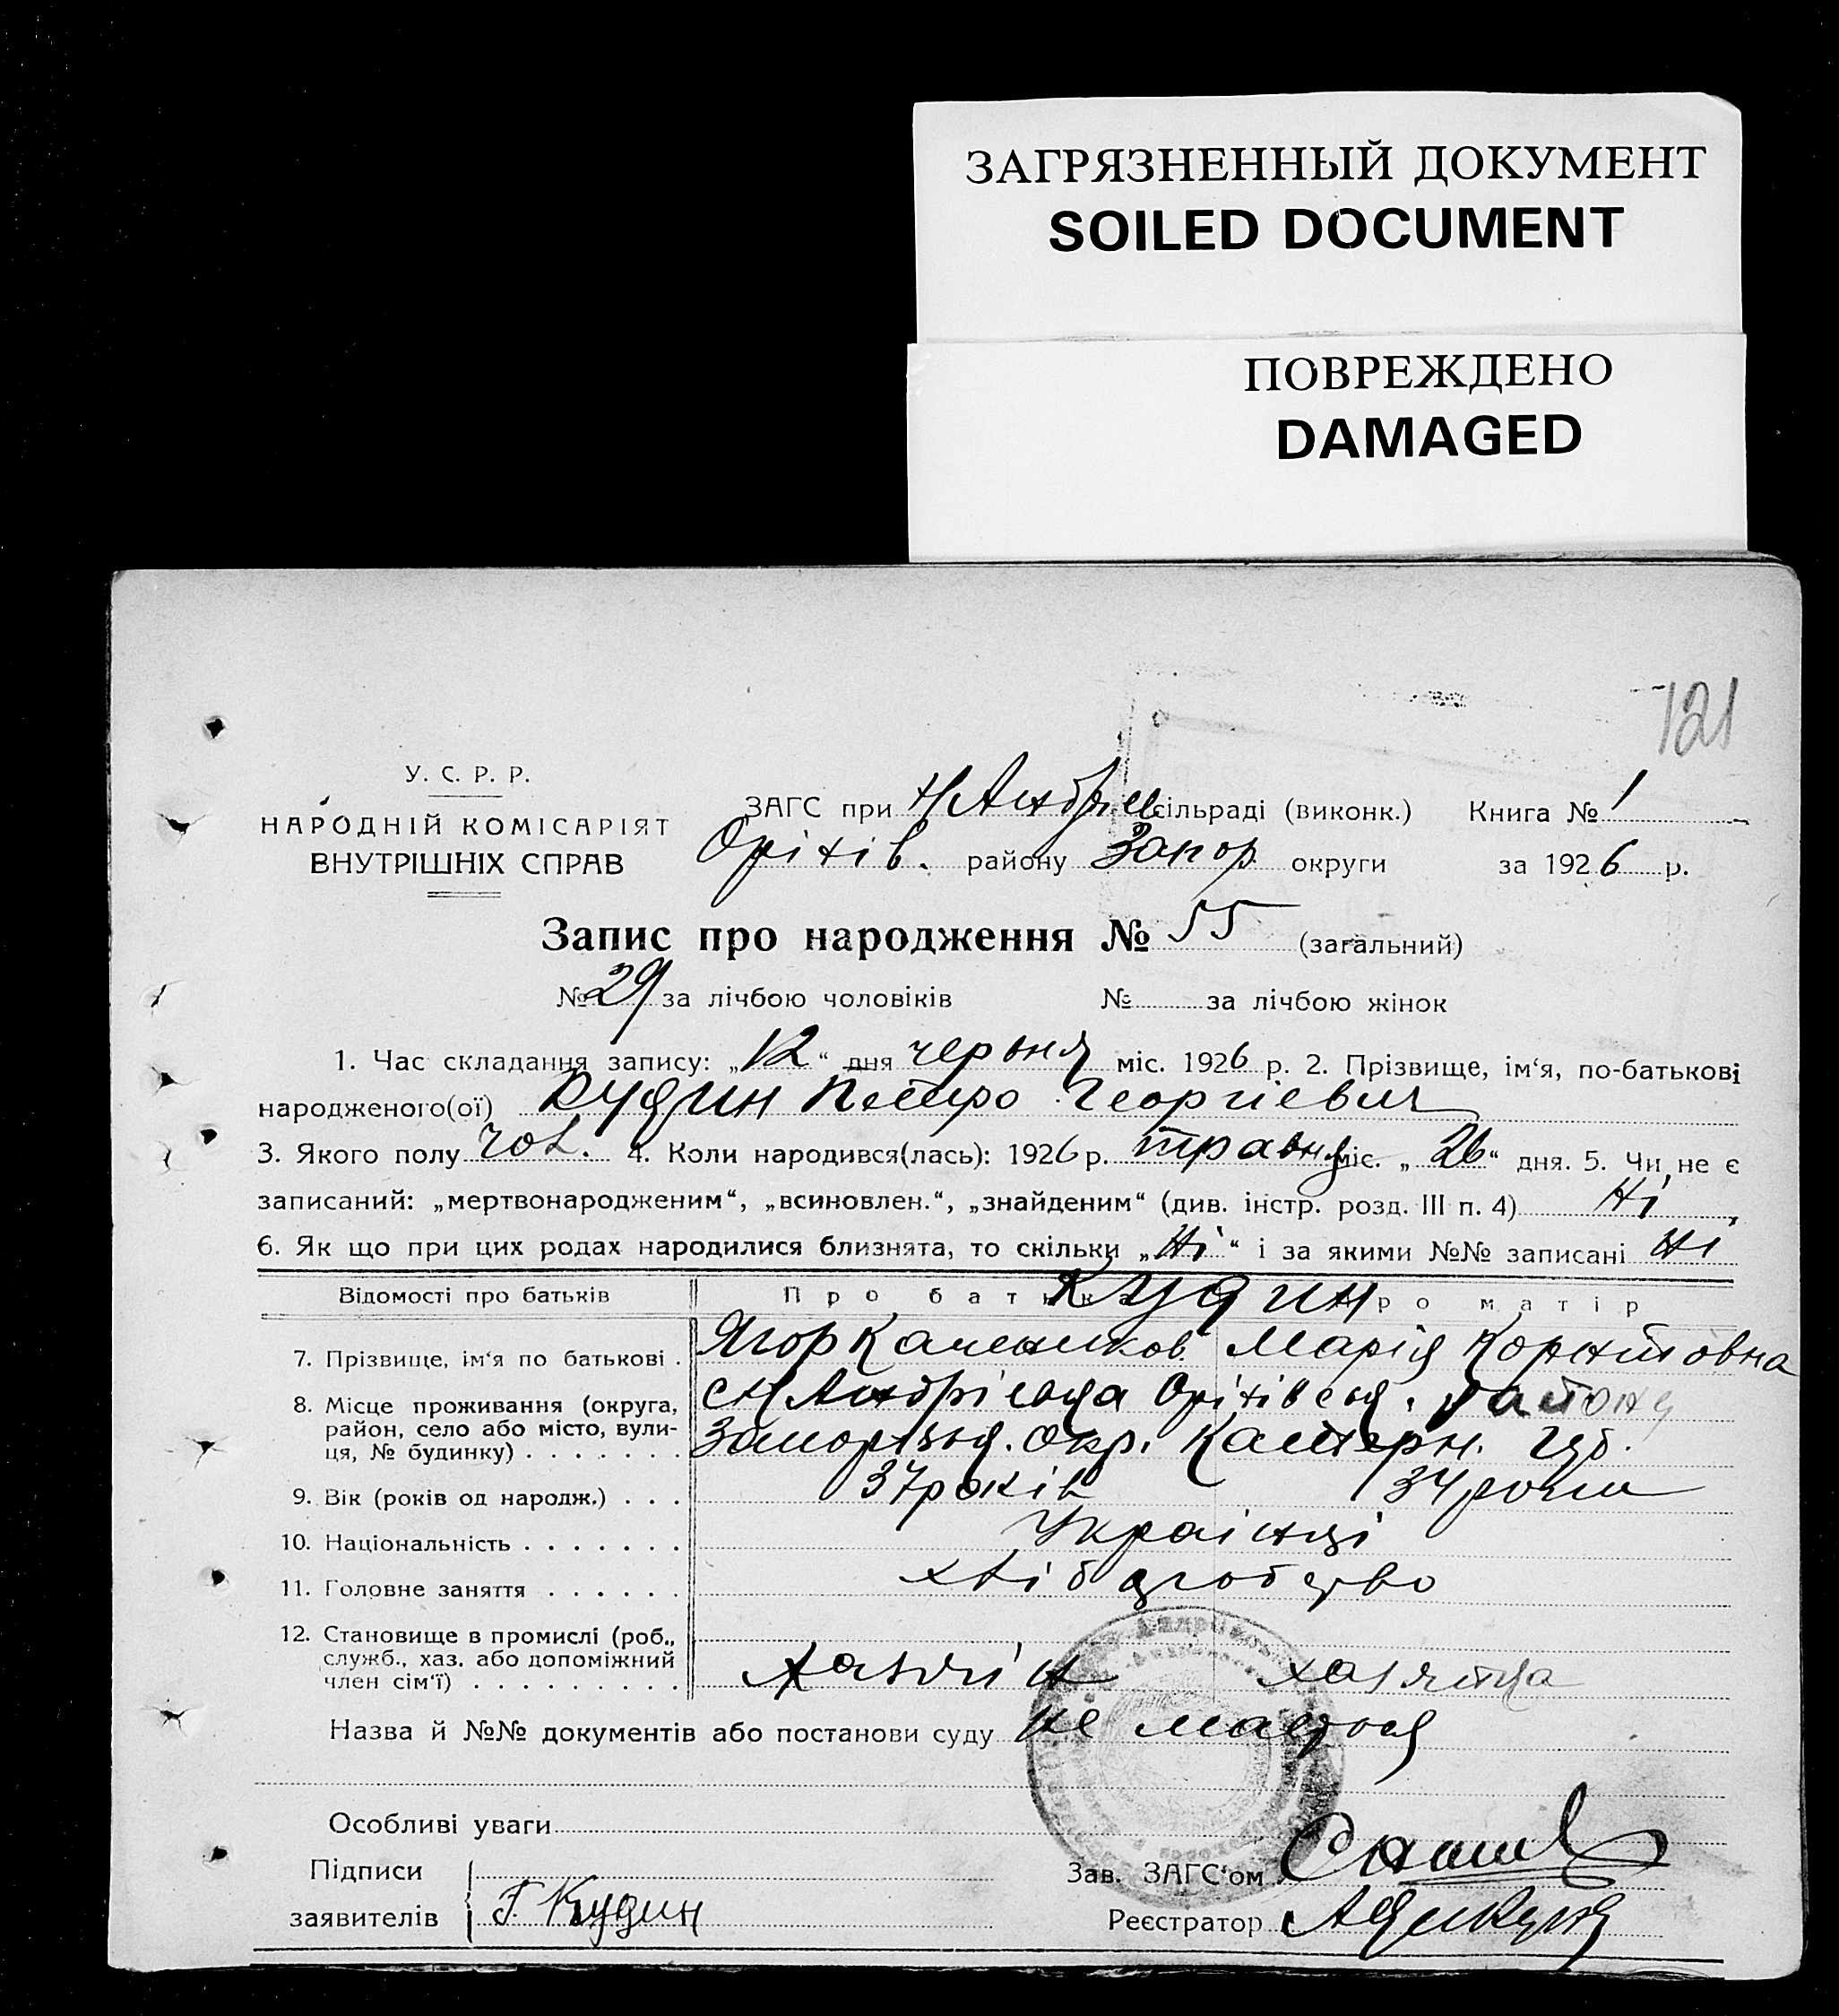 ЗАГРЯЗНЕННЫЙ ДОКУМЕНТ
SOILED DOCUMENT
ПОВРЕЖДЕНО
DAMAGED
121
У. С. Р. Р.
НАРОДНІЙ КОМІСАРІЯТ
ВНУТРІШНІХ СПРАВ
ЗАГС при Н Андріев сільраді (виконк.) Книга № 1
Оріхів. району Запор округи за 1926 р.
Запис про народження № 55 (загальний)
№ 29 за лічбою чоловіків № за лічбою жінок
1. Час складання запису: „12“ дня червня міс. 1926 р. 2. Прізвище, ім‘я, по-батькові
народженого(ої) Кудин Петро Георгіевич
3. Якого полу чол. 4. Коли народився(лась): 1926 р. травня міс. „26“ дня. 5. Чи не є
записаний: „мертвонародженим“, „всиновлен.“, „знайденим“ (див. інстр. розд. III п. 4) Ні,
6. Як що при цих родах народилися близнята, то скільки „Ні“ і за якими №№ записані Ні
Відомості про батьків Про батька Кудин Про матір
7. Прізвище, ім‘я по батькові . Ягор Марія
8. Місце проживання (округа, район, село або місто, вулиця, № будинку) с Н Андріевка Оріхівськ. району
Запорізьк. окр. Катерн. губ.
9. Вік (років од народж.) . . . 37 років 34 роки
10. Національність . . . . . . . Украінці
11. Головне заняття . . . . . . хліборобство
12. Становище в промислі (роб., служб., хаз. або допоміжний член сім‘ї) . . . . . . . . . Хазяін хазяйка
Назва й №№ документів або постанови суду не маеться
Особливі уваги
Підписи
заявителів Г. Кудин
Зав. ЗАГС‘ом
Реєстратор